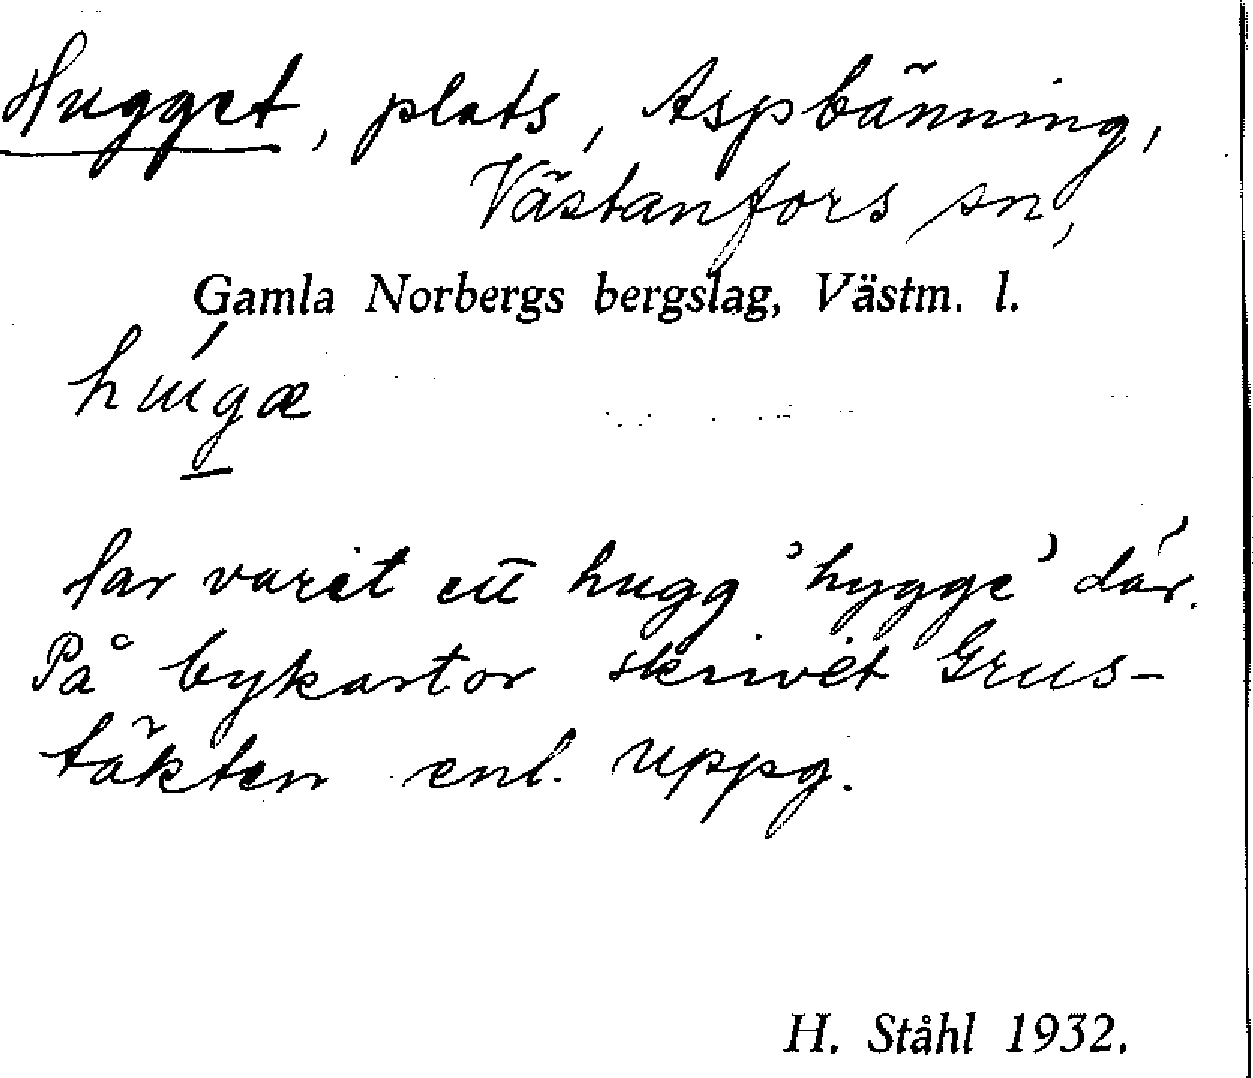 Hugget, plats, Aspbänning,
Västanfors sn,
Gamla Norbergs bergslag, Västm. l.
Har varit ett hugg 'hygge' där.
På bykartor skrivet Grus-
täkten enl. uppg.
H. Ståhl 1932.